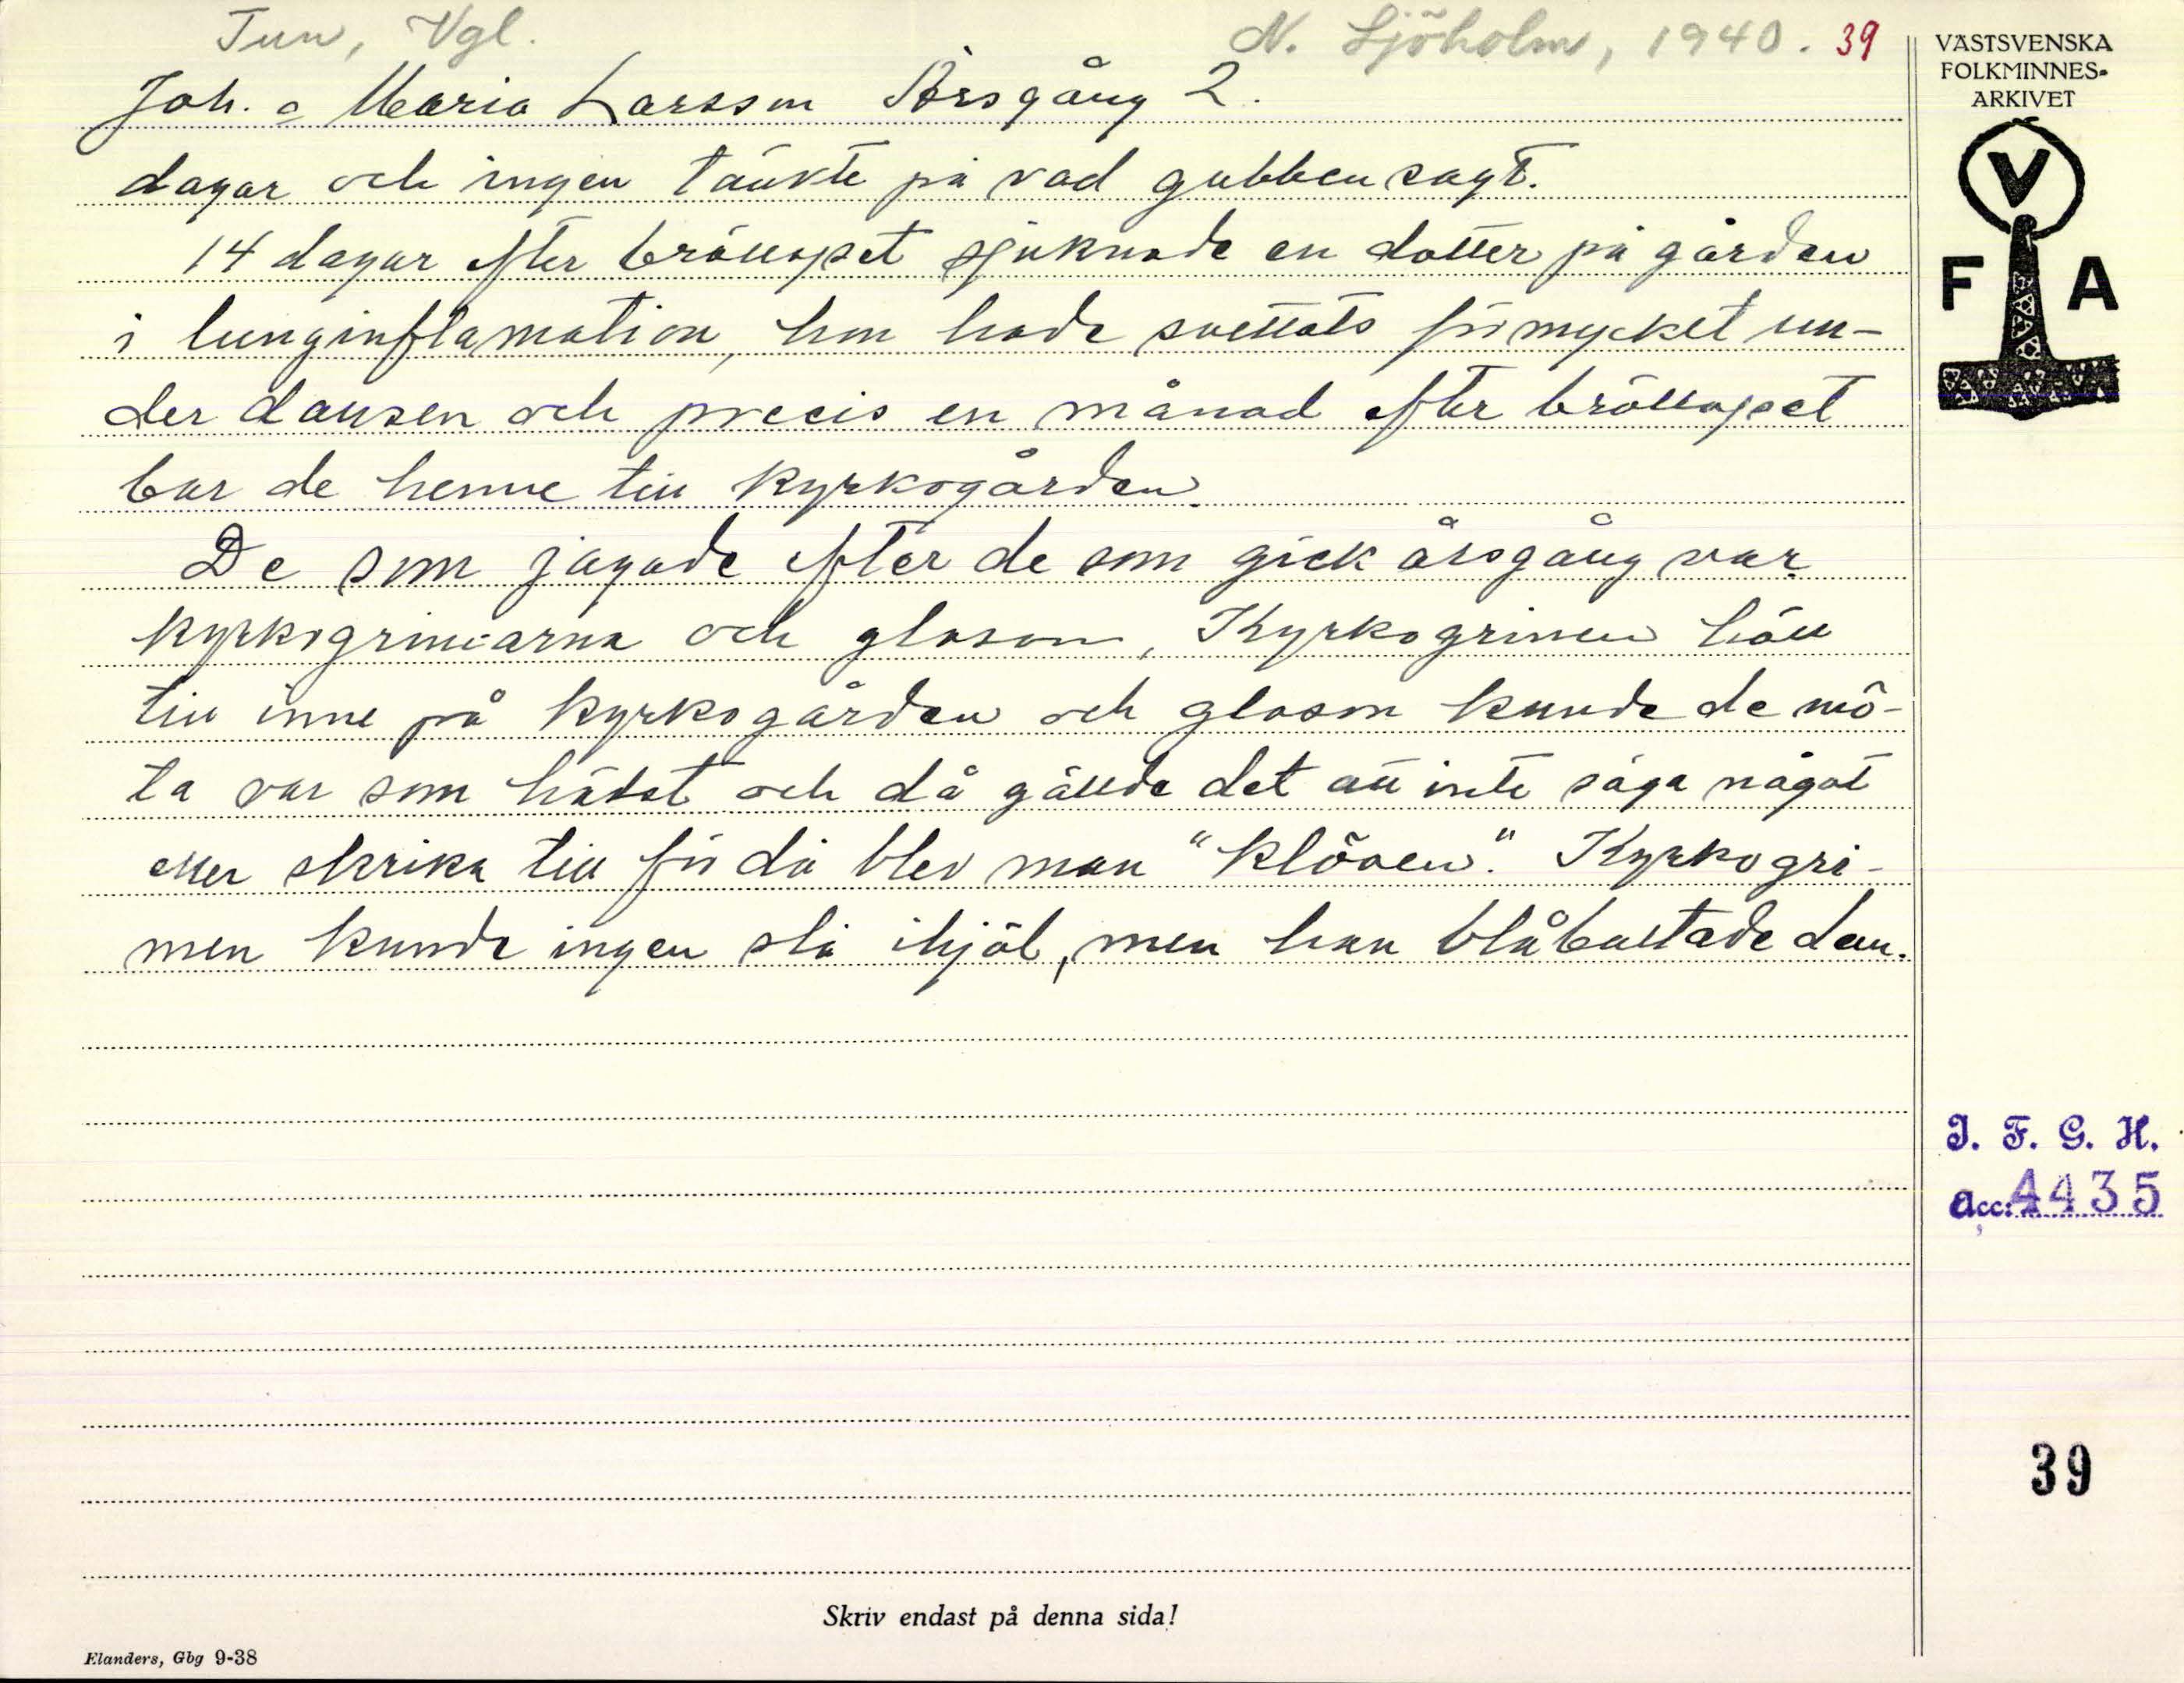 Tun, Vgl. N. Sjöholm, 1940. 39
Joh. o Maria Larsson Årsgång 2.
dagar och ingen tänkte på vad gubben sagt.
14 dagar efter bröllopet sjuknade en dotter på gården
i lunginflamation, hon hade svettats för mycket un-
der dansen och precis en månad efter bröllopet
bar de henne till kyrkogården.
De som jagade efter de som gick årsgång var
kyrkogrimarna och gloson, Kyrkogrimen höll
till inne på kyrkogården och gloson kunde de mö-
ta var som hälst och då gällde det att inte säga något
eller skrika till för då blev man "klöven". Kyrkogri-
men kunde ingen slå ihjäl, men han blåbultade dem.
VÄSTSVENSKA
FOLKMINNES-
ARKIVET
V
F A
I. F. G. H.
Acc: 4435
39
Skriv endast på denna sida!
Elanders, Gbg 9-38